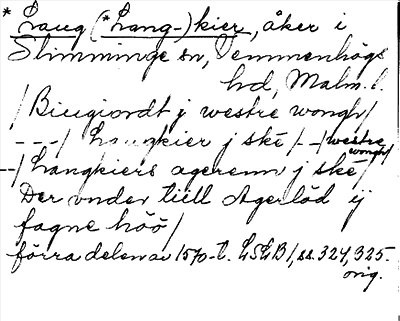 * Laug (*Lang-) kier, åker i
Slimminge sn, Vemmenhögs
hd, Malm. l.
/Biugiordt j westre wongh/
---/ Langkier j ske /--/westre wongh/
--/Langkiers agerenn j ske/
Der vnder tiill Agerlöd ij
fagne höö/
förra delen av 1570-t. LSLB1, ss. 324, 325.
orig.